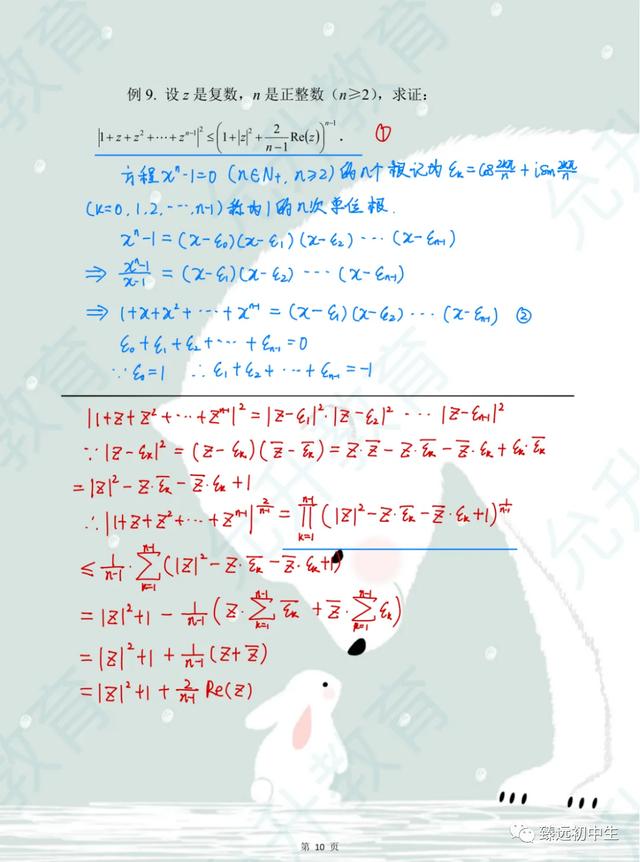 例 9. 设 z 是复数，n 是正整数（n≥2），求证：
|1+z+z²+⋯+zⁿ⁻¹|² ≤ (1+|z|²+2/(n-1) Re(z))ⁿ⁻¹. ①
方程 xⁿ-1=0 (n∈N₊, n≥2) 的n个根记为 ε_k = cos 2kπ/n + i sin 2kπ/n
(k=0,1,2,⋯,n-1) 称为1的n次单位根.
xⁿ-1 = (x-ε₀)(x-ε₁)(x-ε₂)⋯(x-ε_{n-1})
⇒ (xⁿ-1)/(x-1) = (x-ε₁)(x-ε₂)⋯(x-ε_{n-1})
⇒ 1+x+x²+⋯+xⁿ⁻¹ = (x-ε₁)(x-ε₂)⋯(x-ε_{n-1}) ②
ε₀+ε₁+ε₂+⋯+ε_{n-1}=0
∵ε₀=1 ∴ε₁+ε₂+⋯+ε_{n-1}=-1
|1+z+z²+⋯+zⁿ⁻¹|² = |z-ε₁|²·|z-ε₂|²⋯|z-ε_{n-1}|²
∵|z-ε_k|² = (z-ε_k)(z̅-ε̅_k) = z·z̅-z·ε̅_k-z̅·ε_k+ε_k·ε̅_k
=|z|²-z·ε̅_k-z̅·ε_k+1
∴|1+z+z²+⋯+zⁿ⁻¹|^{2/(n-1)} = ∏_{k=1}^{n-1}(|z|²-z·ε̅_k-z̅·ε_k+1)^{1/(n-1)}
≤ 1/(n-1)·∑_{k=1}^{n-1}(|z|²-z·ε̅_k-z̅·ε_k+1)
=|z|²+1-1/(n-1)(z·∑_{k=1}^{n-1}ε̅_k+z̅·∑_{k=1}^{n-1}ε_k)
=|z|²+1+1/(n-1)(z+z̅)
=|z|²+1+2/(n-1) Re(z)
第 10 页
臻远初中生
允升教育